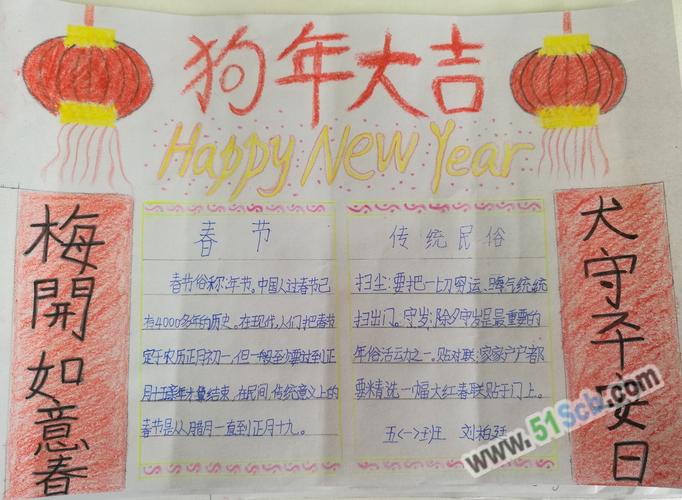 狗年大吉
Happy New Year
梅開如意春
春节
春节俗称:年节。中国人过春节已
有4000多年的历史。在现代,人们把春节
定于农历正月初一,但一般至少要过到正
月十五年才算结束,在民间,传统意义上的
春节是从腊月一直到正月十九。
传统民俗
扫尘:要把一切穷运、晦气统统
扫出门。守岁:除夕守岁是最重要的
年俗活动之一。贴对联:家家户户都
要精选一幅大红春联贴于门上。
五<一>班 刘柏廷
犬守平安日
www.51Scb.com